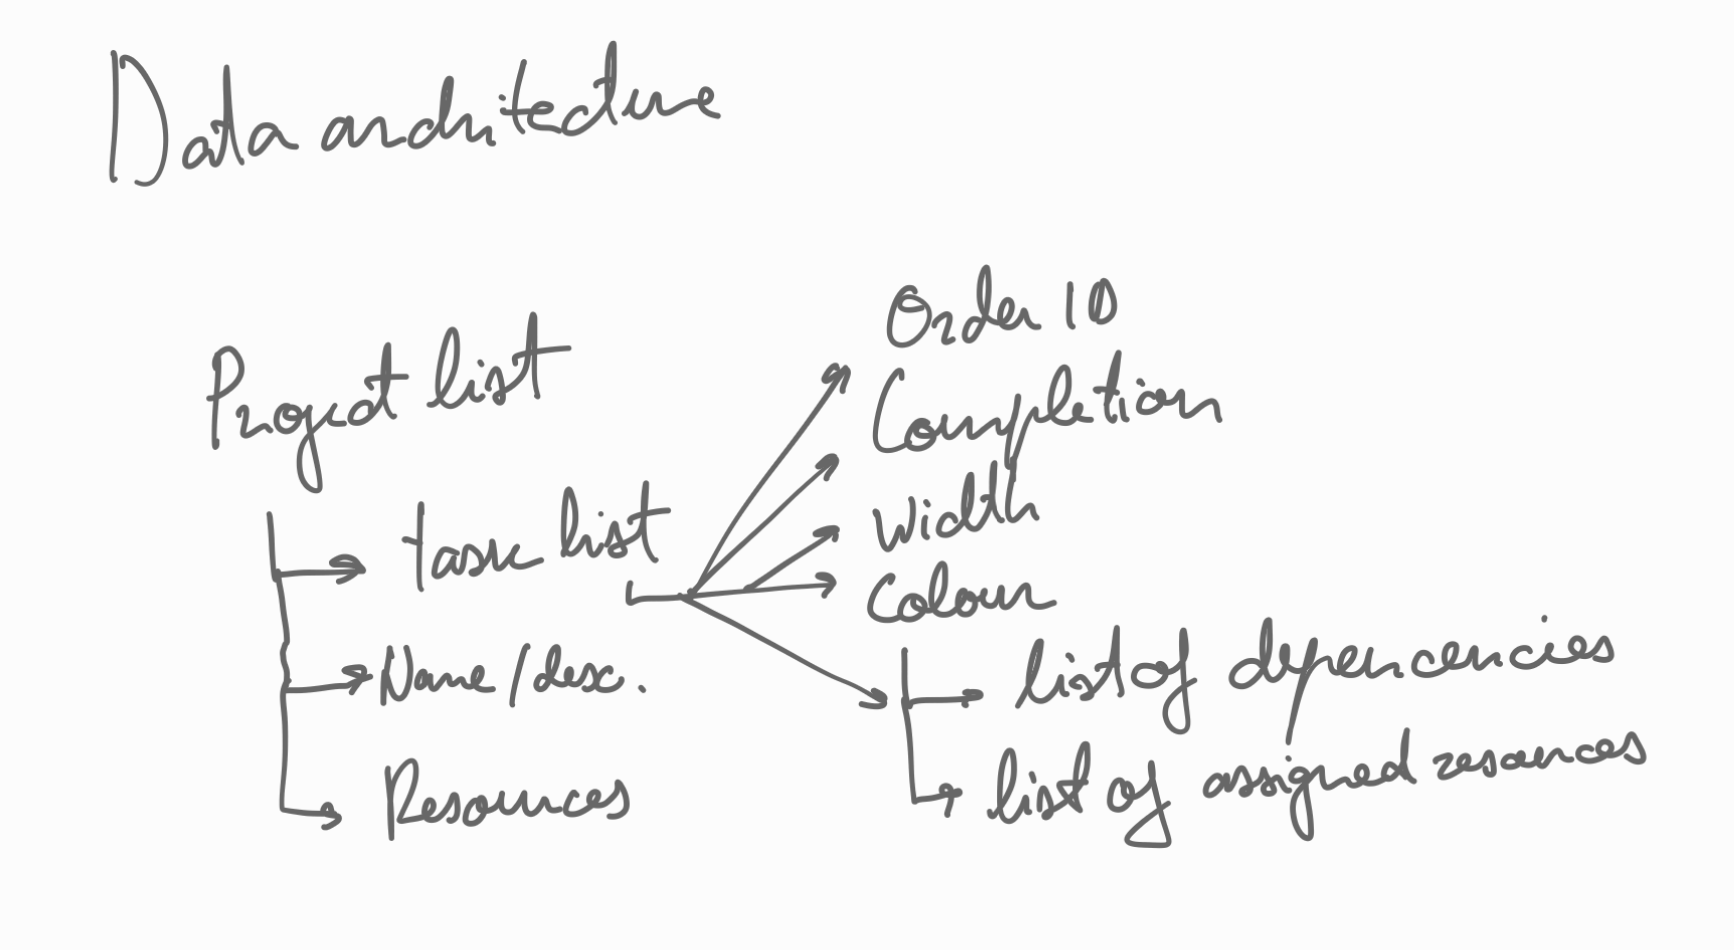 Data architecture
Project list
task list
Name/desc.
Resources
Order ID
Completion
Width
Colour
list of depencencies
list of assigned resources